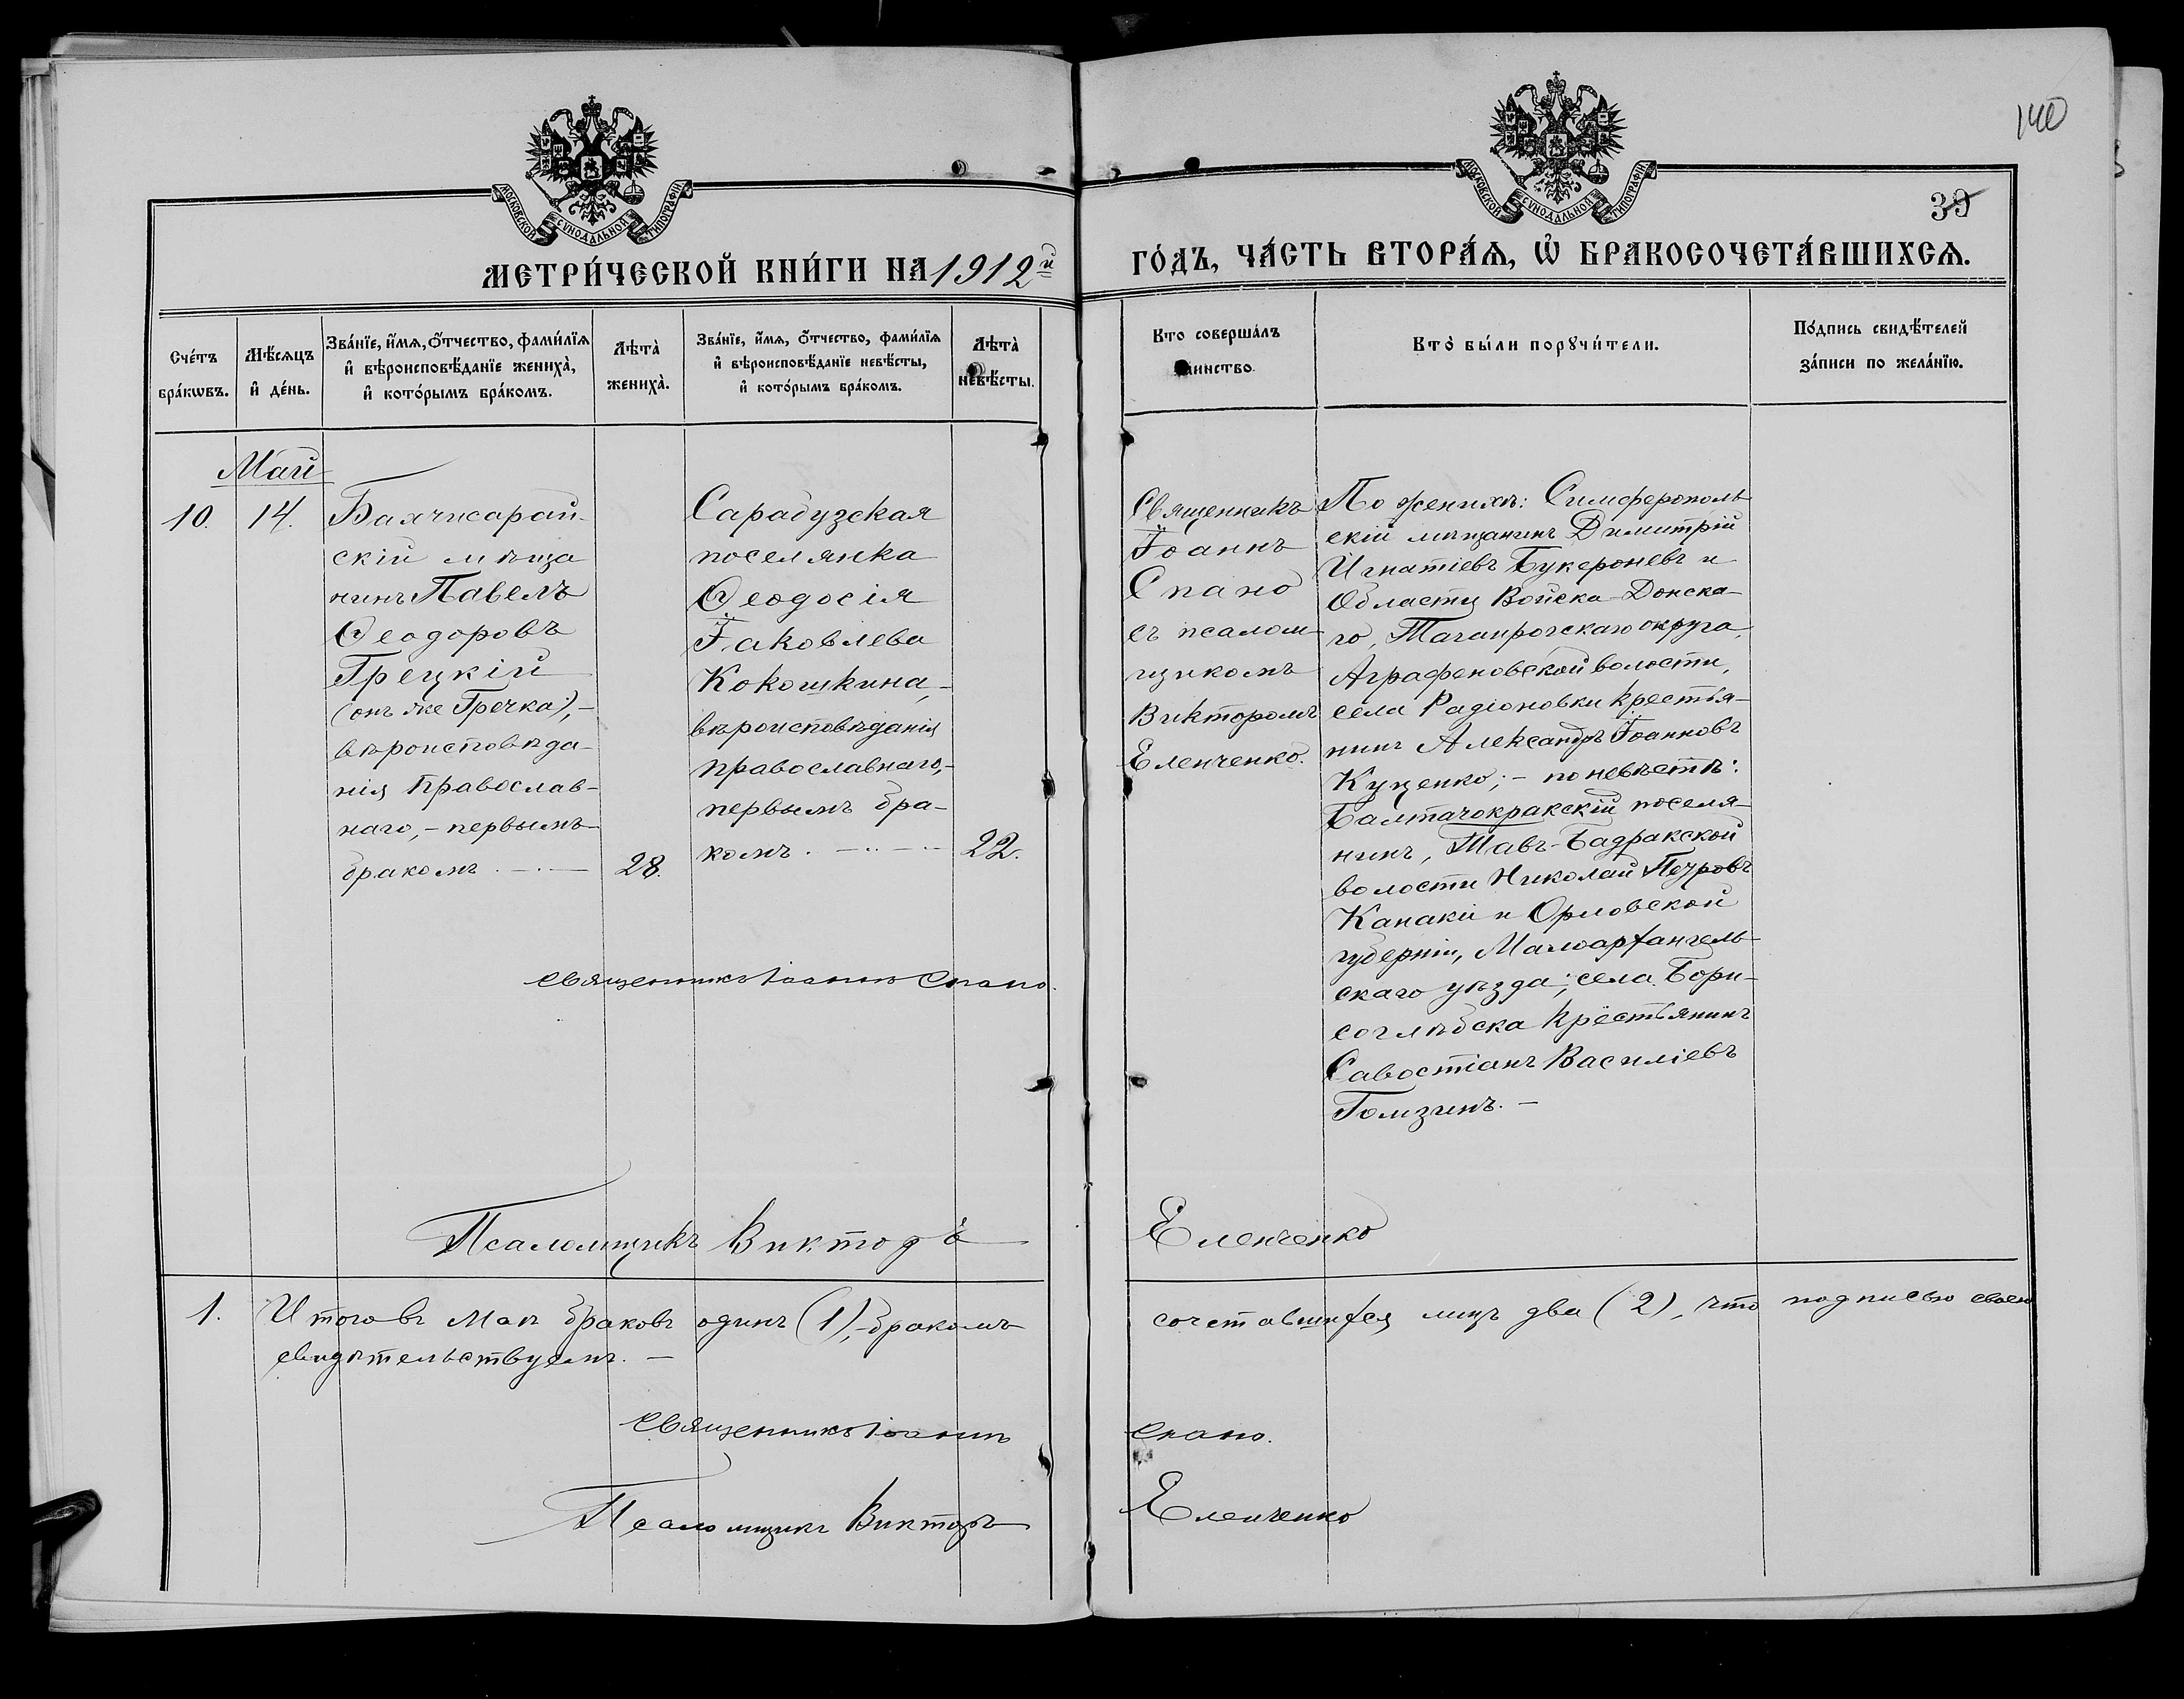 140
39
МОСКОВСКОЙ СѴНОДАЛЬНОЙ ТИПОГРАФІИ
МОСКОВСКОЙ СѴНОДАЛЬНОЙ ТИПОГРАФІИ
МЕТРИ́ЧЕСКОЙ КНИ́ГИ НА 1912й
ГО́ДЪ, ЧА́СТЬ ВТОРА́Ѧ, Ѡ҆ БРАКОСОЧЕТА́ВШИХСѦ.
Сче́тъ
бра́кѡвъ.
Мѣ́сяцъ
и҆ де́нь.
Зва́нїе, и҆́мя, ѻ҆́тчество, фами́лїя
и҆ вѣроисповѣ́данїе жениха̀,
и҆ кото́рымъ бра́комъ.
Лѣта̀
жениха̀.
Зва́нїе, и҆́мя, ѻ҆́тчество, фами́лїя
и҆ вѣроисповѣ́данїе невѣ́сты,
и҆ кото́рымъ бра́комъ.
Лѣта̀
невѣ́сты.
Кто совершáлъ
таинство.
Кто̀ бы́ли порꙋчи́тели.
По́дпись свидѣ́телей
за́писи по жела́нїю.
Май
10.
14.
Бахчисарай-
скій мѣща
нинъ Павелъ
Ѳеодоровъ
Грецкій
(онъ же Гречка),-
вѣроисповѣда-
нія православ-
наго,- первымъ
бракомъ.
28.
Сарабузская
поселянка
Ѳеодосія
Іаковлева
Кокошкина,-
вѣроисповѣданія
православнаго,-
первымъ бра-
комъ.
22.
Священникъ
Іоаннъ
Спано
съ псалом-
щикомъ
Викторомъ
Еленченко.
По женихѣ: Симферополь-
скій мѣщанинъ Димитрій
Игнатіевъ Букероневъ и
Области Войска Донска-
го, Таганрогскаго округа,
Аграфеновской волости,
села Радіоновки крестья-
нинъ Александръ Іоанновъ
Куценко;- по невѣстѣ:
Балтачокракскій поселя-
нинъ, Тавъ-Бадракской
волости Николай Петровъ
Канаки и Орловской
губерніи, Малоархангель-
скаго уѣзда, села Бори-
соглѣбска крестьянинъ
Савостіанъ Василіевъ
Гомзинъ.-
священникъ Іоаннъ Спано.
Псаломщикъ Викторъ
Еленченко
1. Итого въ маѣ браковъ одинъ (1),- бракомъ
сочетавшихся лицъ два (2), что подписью своею
свидѣтельствуемъ.-
священникъ Іоаннъ
Спано.
Псаломщикъ Викторъ
Еленченко